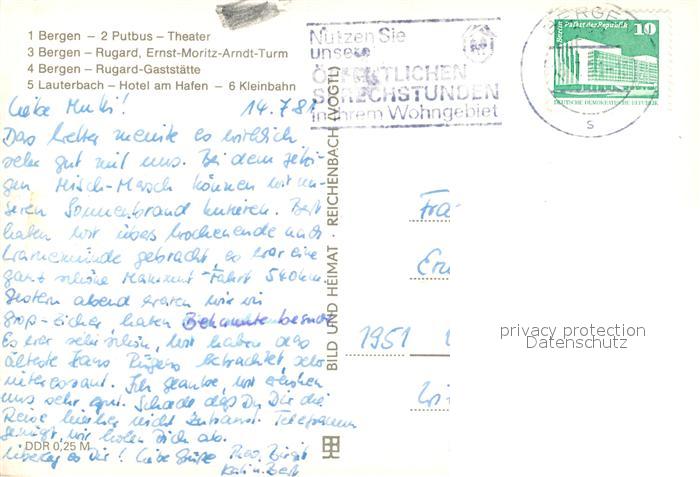 1 Bergen – 2 Putbus – Theater
3 Bergen – Rugard, Ernst-Moritz-Arndt-Turm
4 Bergen – Rugard-Gaststätte
5 Lauterbach – Hotel am Hafen – 6 Kleinbahn
Nutzen Sie
unsere
ÖFFENTLICHEN
SPRECHSTUNDEN
in Ihrem Wohngebiet
BERGE
S
Berlin Palast der Republik
10
DEUTSCHE DEMOKRATISCHE REPUBLIK
Liebe Mutti! 14.7.81
Das Wetter meinte es wirklich
sehr gut mit uns. Bei dem jetzi-
gen Misch-Masch können wir un-
seren Sonnenbrand kurieren. Bert
haben wir übers Wochenende nach
Warnemünde gebracht, es war eine
ganz schöne Mammut-Fahrt 540 km.
Gestern abend waren wir in
haben Bekannte besucht
Es war sehr schön, wir haben das
älteste Haus Rügens betrachtet, sehr
interessant. Ich glaube, wir erholen
uns sehr gut. Schade daß Du Dir die
Reise hierher nicht zutraust. Telefonieren
genügt, wir holen Dich ab.
Überleg es Dir! Liebe Grüße Birgit
Bert
BILD UND HEIMAT REICHENBACH (VOGTL)
DDR 0,25 M
Fra
1951
privacy protection
Datenschutz